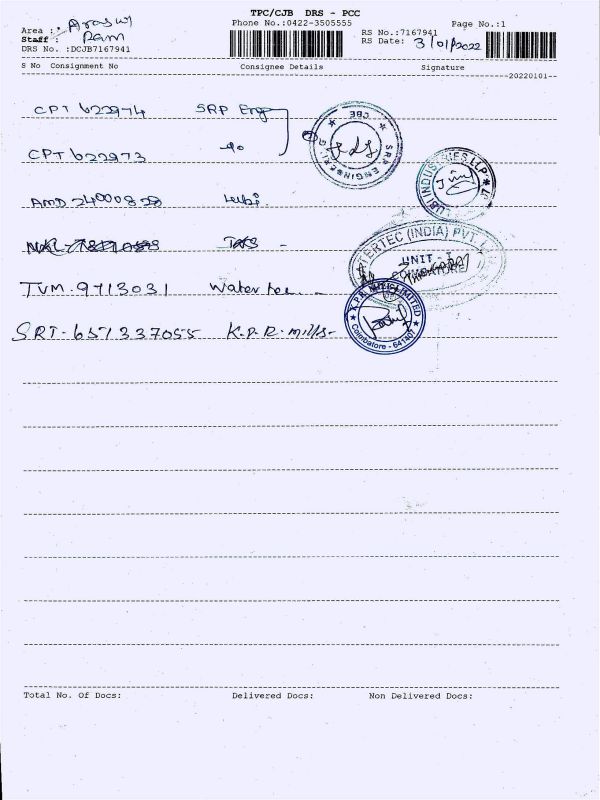 TPC/CJB DRS - PCC
Phone No.:0422-3505555 Page No.:1
Area : Arasur RS No.:7167941
Staff : Ram RS Date: 3/01/2022
DRS No. :DCJB7167941
S No Consignment No Consignee Details Signature
20220101
CPT 622974 SRP Engg
CPT 622973 do
AMD 24000828 Lubi
TVM-9713031 Water tec
SRT-657337055 K.P.R. mills-
CBE
SRP ENGINEERING
LUBI INDUSTRIES LLP
WATERTEC (INDIA) PVT. LTD
UNIT - I
COIMBATORE
K.P.R. MILL LIMITED
Coimbatore - 641407
Total No. Of Docs: Delivered Docs: Non Delivered Docs: